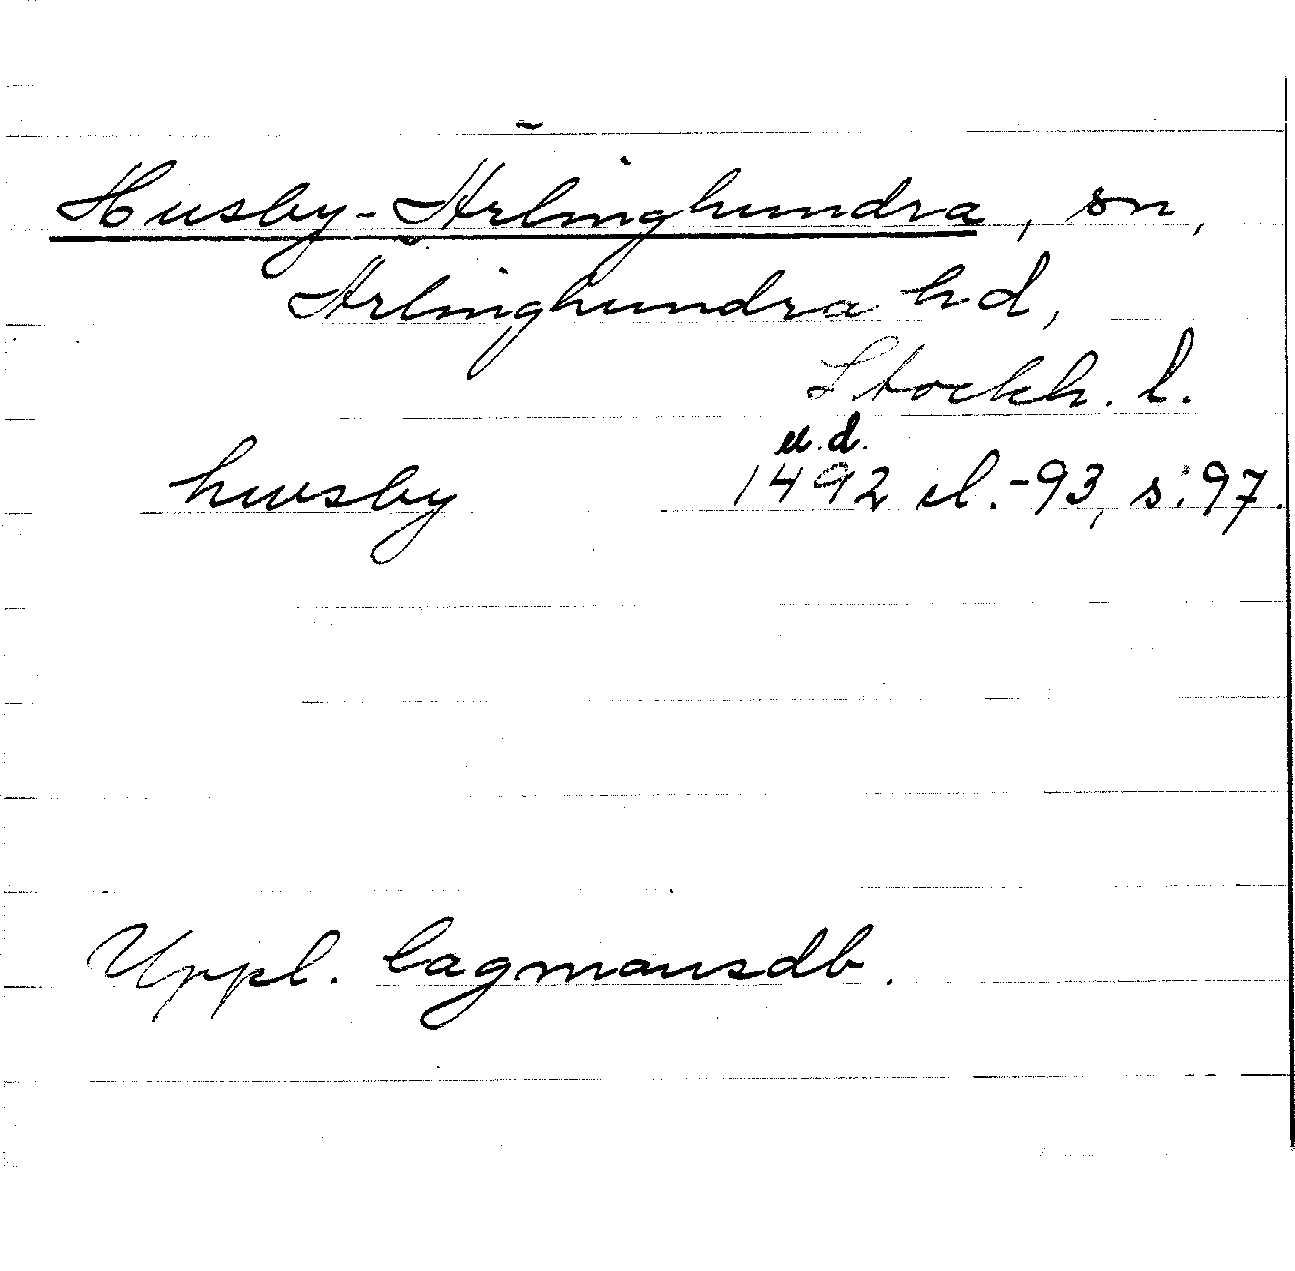 Husby-Ärlinghundra, sn,
Ärlinghundra hd,
Stockh. l.
u.d.
hwsby 1492 el.-93, s:97.
Uppl. lagmansdb.